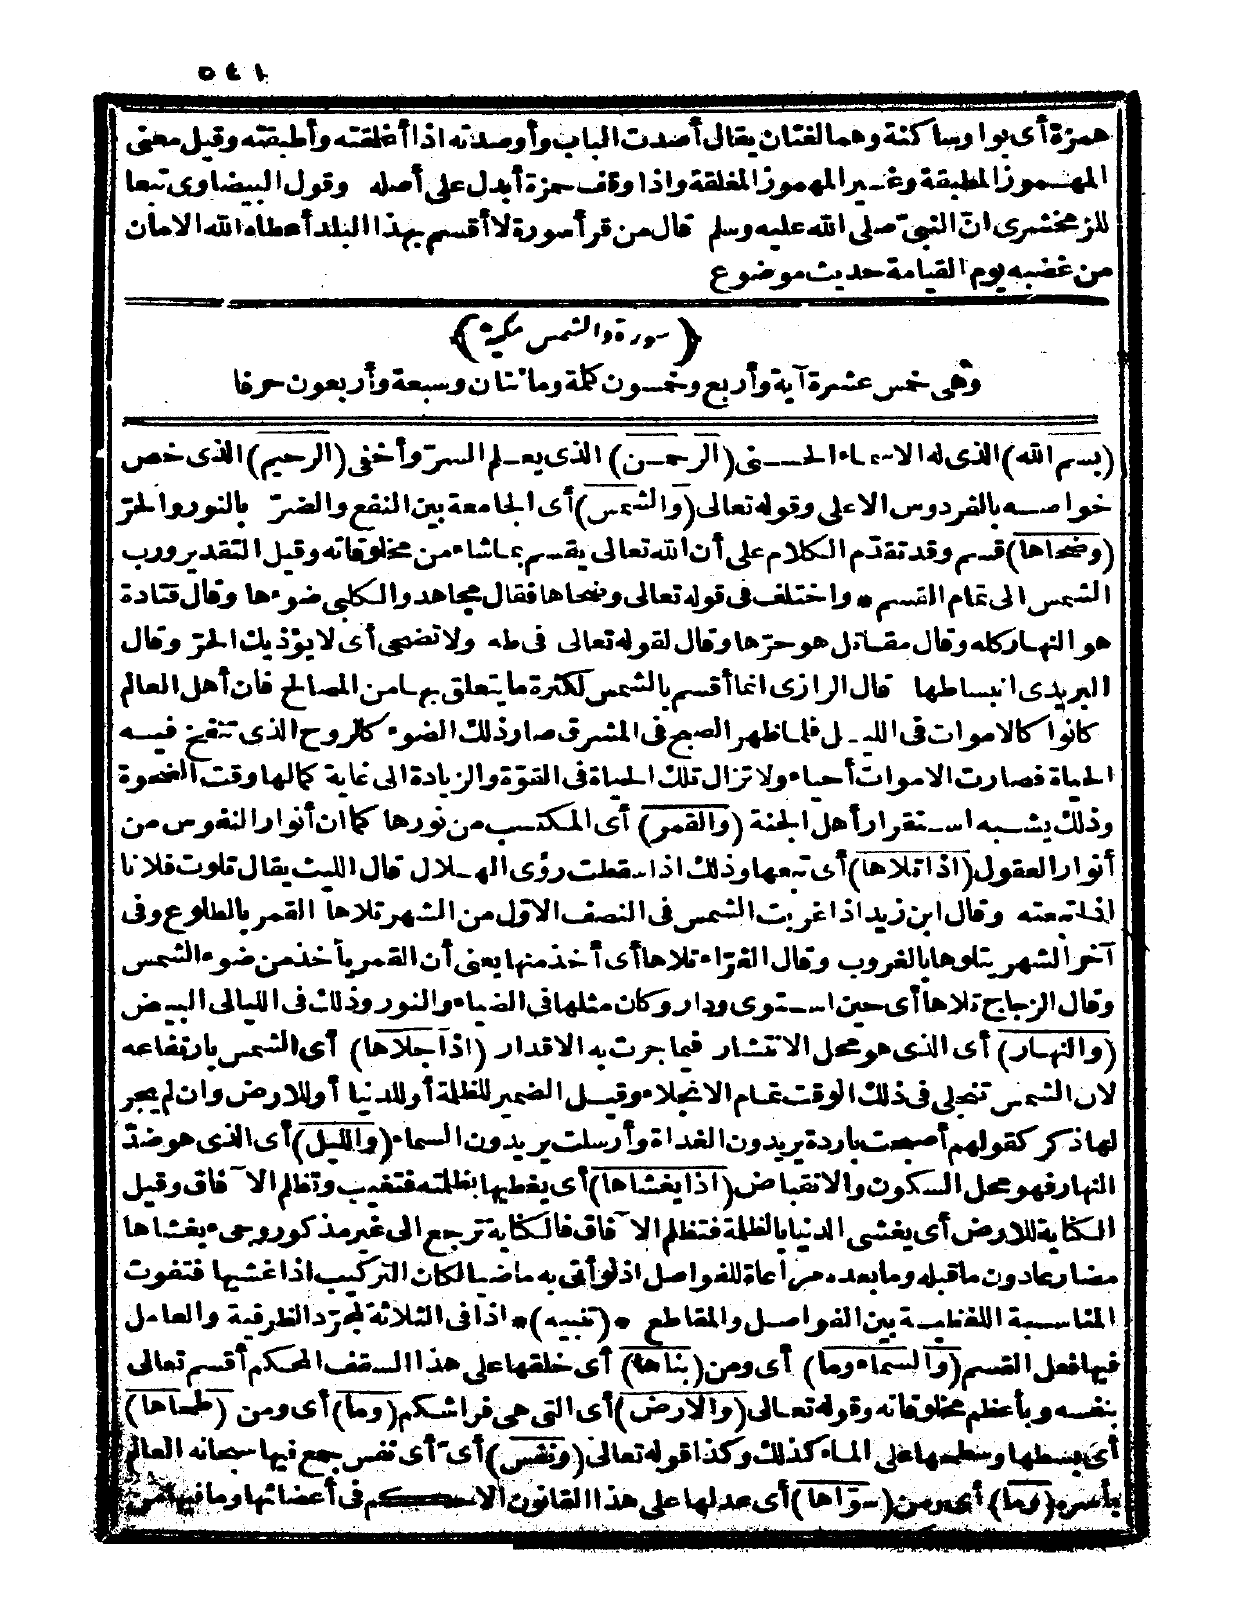 ٥٤١
همزة أى بواو ساكنة وهما لغتان يقال أصدت الباب وأوصدته اذا أغلقته وأطبقته وقيل معنى
المهموز المطبقة وغير المهموز المغلقة واذا وقف حمزة أبدل على أصله وقول البيضاوى تبعا
للزمخشرى انّ النبىّ صلى الله عليه وسلم قال من قرأ سورة لا أقسم بهذا البلد أعطاه الله الامان
من غضبه يوم القيامة حديث موضوع
﴿سورة والشمس مكية﴾
وهى خمس عشرة آية وأربع وخمسون كلمة ومائتان وسبعة وأربعون حرفا
(بسم الله) الذى له الاسماء الحسنى (الرحمن) الذى يعلم السرّ وأخفى (الرحيم) الذى خص
خواصه بالفردوس الاعلى وقوله تعالى (والشمس) أى الجامعة بين النفع والضرّ بالنور والحرّ
(وضحاها) قسم وقد تقدّم الكلام على أن الله تعالى يقسم بما شاء من مخلوقاته وقيل التقدير ورب
الشمس الى تمام القسم * واختلف فى قوله تعالى وضحاها فقال مجاهد والكلبى ضوءها وقال قتادة
هو النهار كله وقال مقاتل هو حرّها وقال لقوله تعالى فى طه ولا تضحى أى لا يؤذيك الحرّ وقال
اليزيدى انبساطها قال الرازى انما أقسم بالشمس لكثرة ما يتعلق بها من المصالح فان أهل العالم
كانوا كالاموات فى الليل فلما ظهر الصبح فى المشرق صار ذلك الضوء كالروح الذى تنفخ فيه
الحياة فصارت الاموات أحياء ولا تزال تلك الحياة فى القوّة والزيادة الى غاية كمالها وقت الضحوة
وذلك يشبه استقرار أهل الجنة (والقمر) أى المكتسب من نورها كما ان أنوار النفوس من
أنوار العقول (اذا تلاها) أى تبعها وذلك اذا سقطت رؤى الهلال قال الليث يقال تلوت فلانا
اذا تبعته وقال ابن زيد اذا غربت الشمس فى النصف الاوّل من الشهر تلاها القمر بالطلوع وفى
آخر الشهر يتلوها بالغروب وقال الفرّاء تلاها أى أخذ منها يعنى أن القمر يأخذ من ضوء الشمس
وقال الزجاج تلاها أى حين استوى ودار وكان مثلها فى الضياء والنور وذلك فى الليالى البيض
(والنهار) أى الذى هو محل الانتشار فيما جرت به الاقدار (اذا جلاها) أى الشمس بارتفاعه
لان الشمس تنجلى فى ذلك الوقت تمام الانجلاء وقيل الضمير للظلمة أو للدنيا أو للارض وان لم يجر
لها ذكر كقولهم أصبحت باردة يريدون الغداة وأرسلت يريدون السماء (والليل) أى الذى هو ضدّ
النهار فهو محل السكون والانقباض (اذا يغشاها) أى يغطيها بظلمته فتغيب وتظلم الآفاق وقيل
الكناية للارض أى يغشى الدنيا بالظلمة فتظلم الآفاق فالكناية ترجع الى غير مذكور وجىء بيغشاها
مضارعا دون ما قبله وما بعده مراعاة للفواصل اذ لو أتى به ماضيا لكان التركيب اذا غشيها فتفوت
المناسبة اللفظية بين الفواصل والمقاطع * (تنبيه) * اذا فى الثلاثة لمجرّد الظرفية والعامل
فيها فعل القسم (والسماء وما) أى ومن (بناها) أى خلقها على هذا السقف المحكم أقسم تعالى
بنفسه وبأعظم مخلوقاته وقوله تعالى (والارض) أى التى هى فراشكم (وما) أى ومن (طحاها)
أى بسطها وسطحها على الماء كذلك وكذا قوله تعالى (ونفس) أى أىّ نفس جمع فيها سبحانه العالم
بأسره (وما) أى ومن (سوّاها) أى عدلها على هذا القانون الاحكم فى أعضائها وما فيها من